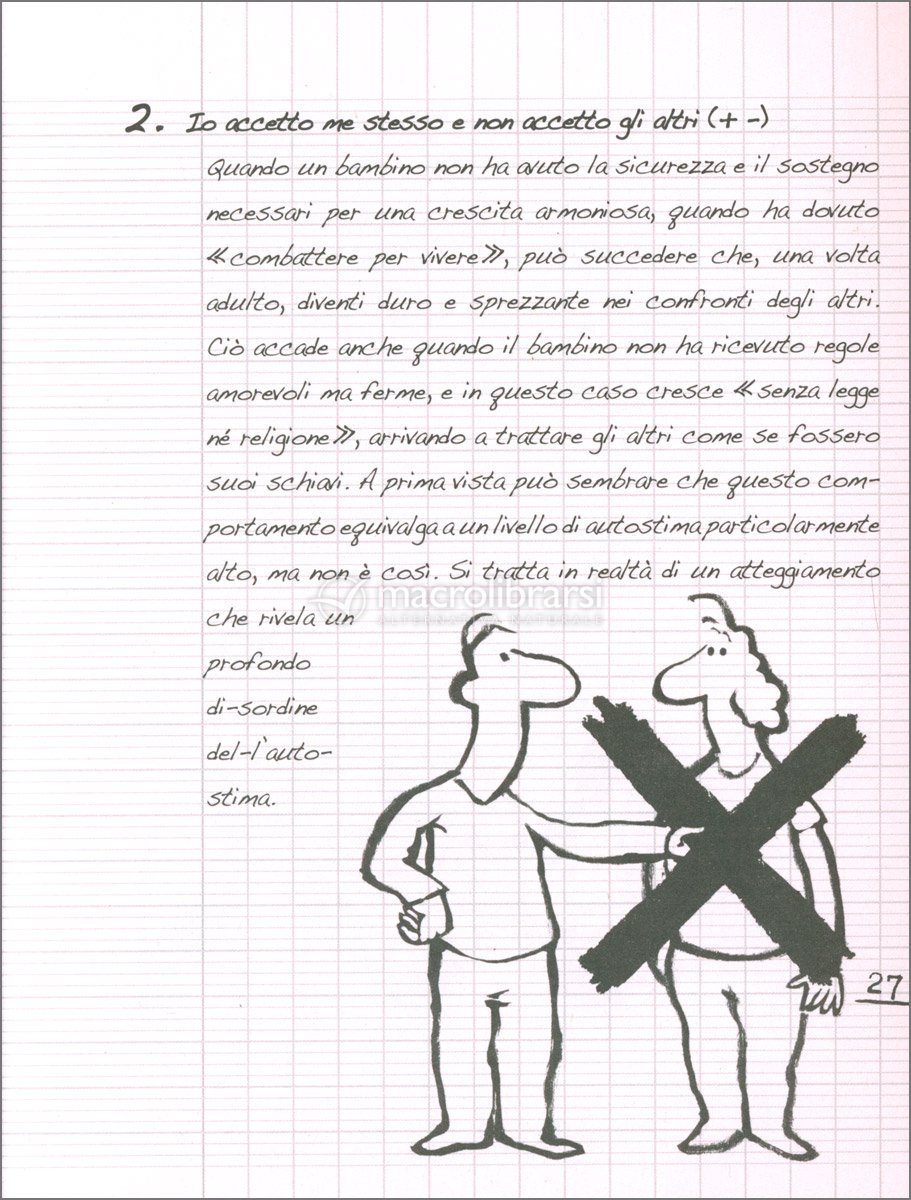 2. Io accetto me stesso e non accetto gli altri (+ -)
Quando un bambino non ha avuto la sicurezza e il sostegno
necessari per una crescita armoniosa, quando ha dovuto
«combattere per vivere», può succedere che, una volta
adulto, diventi duro e sprezzante nei confronti degli altri.
Ciò accade anche quando il bambino non ha ricevuto regole
amorevoli ma ferme, e in questo caso cresce «senza legge
né religione», arrivando a trattare gli altri come se fossero
suoi schiavi. A prima vista può sembrare che questo com-
portamento equivalga a un livello di autostima particolarmente
alto, ma non è così. Si tratta in realtà di un atteggiamento
macrolibrarsi
ALTERNATIVA NATURALE
che rivela un
profondo
di-sordine
del-l'auto-
stima.
27